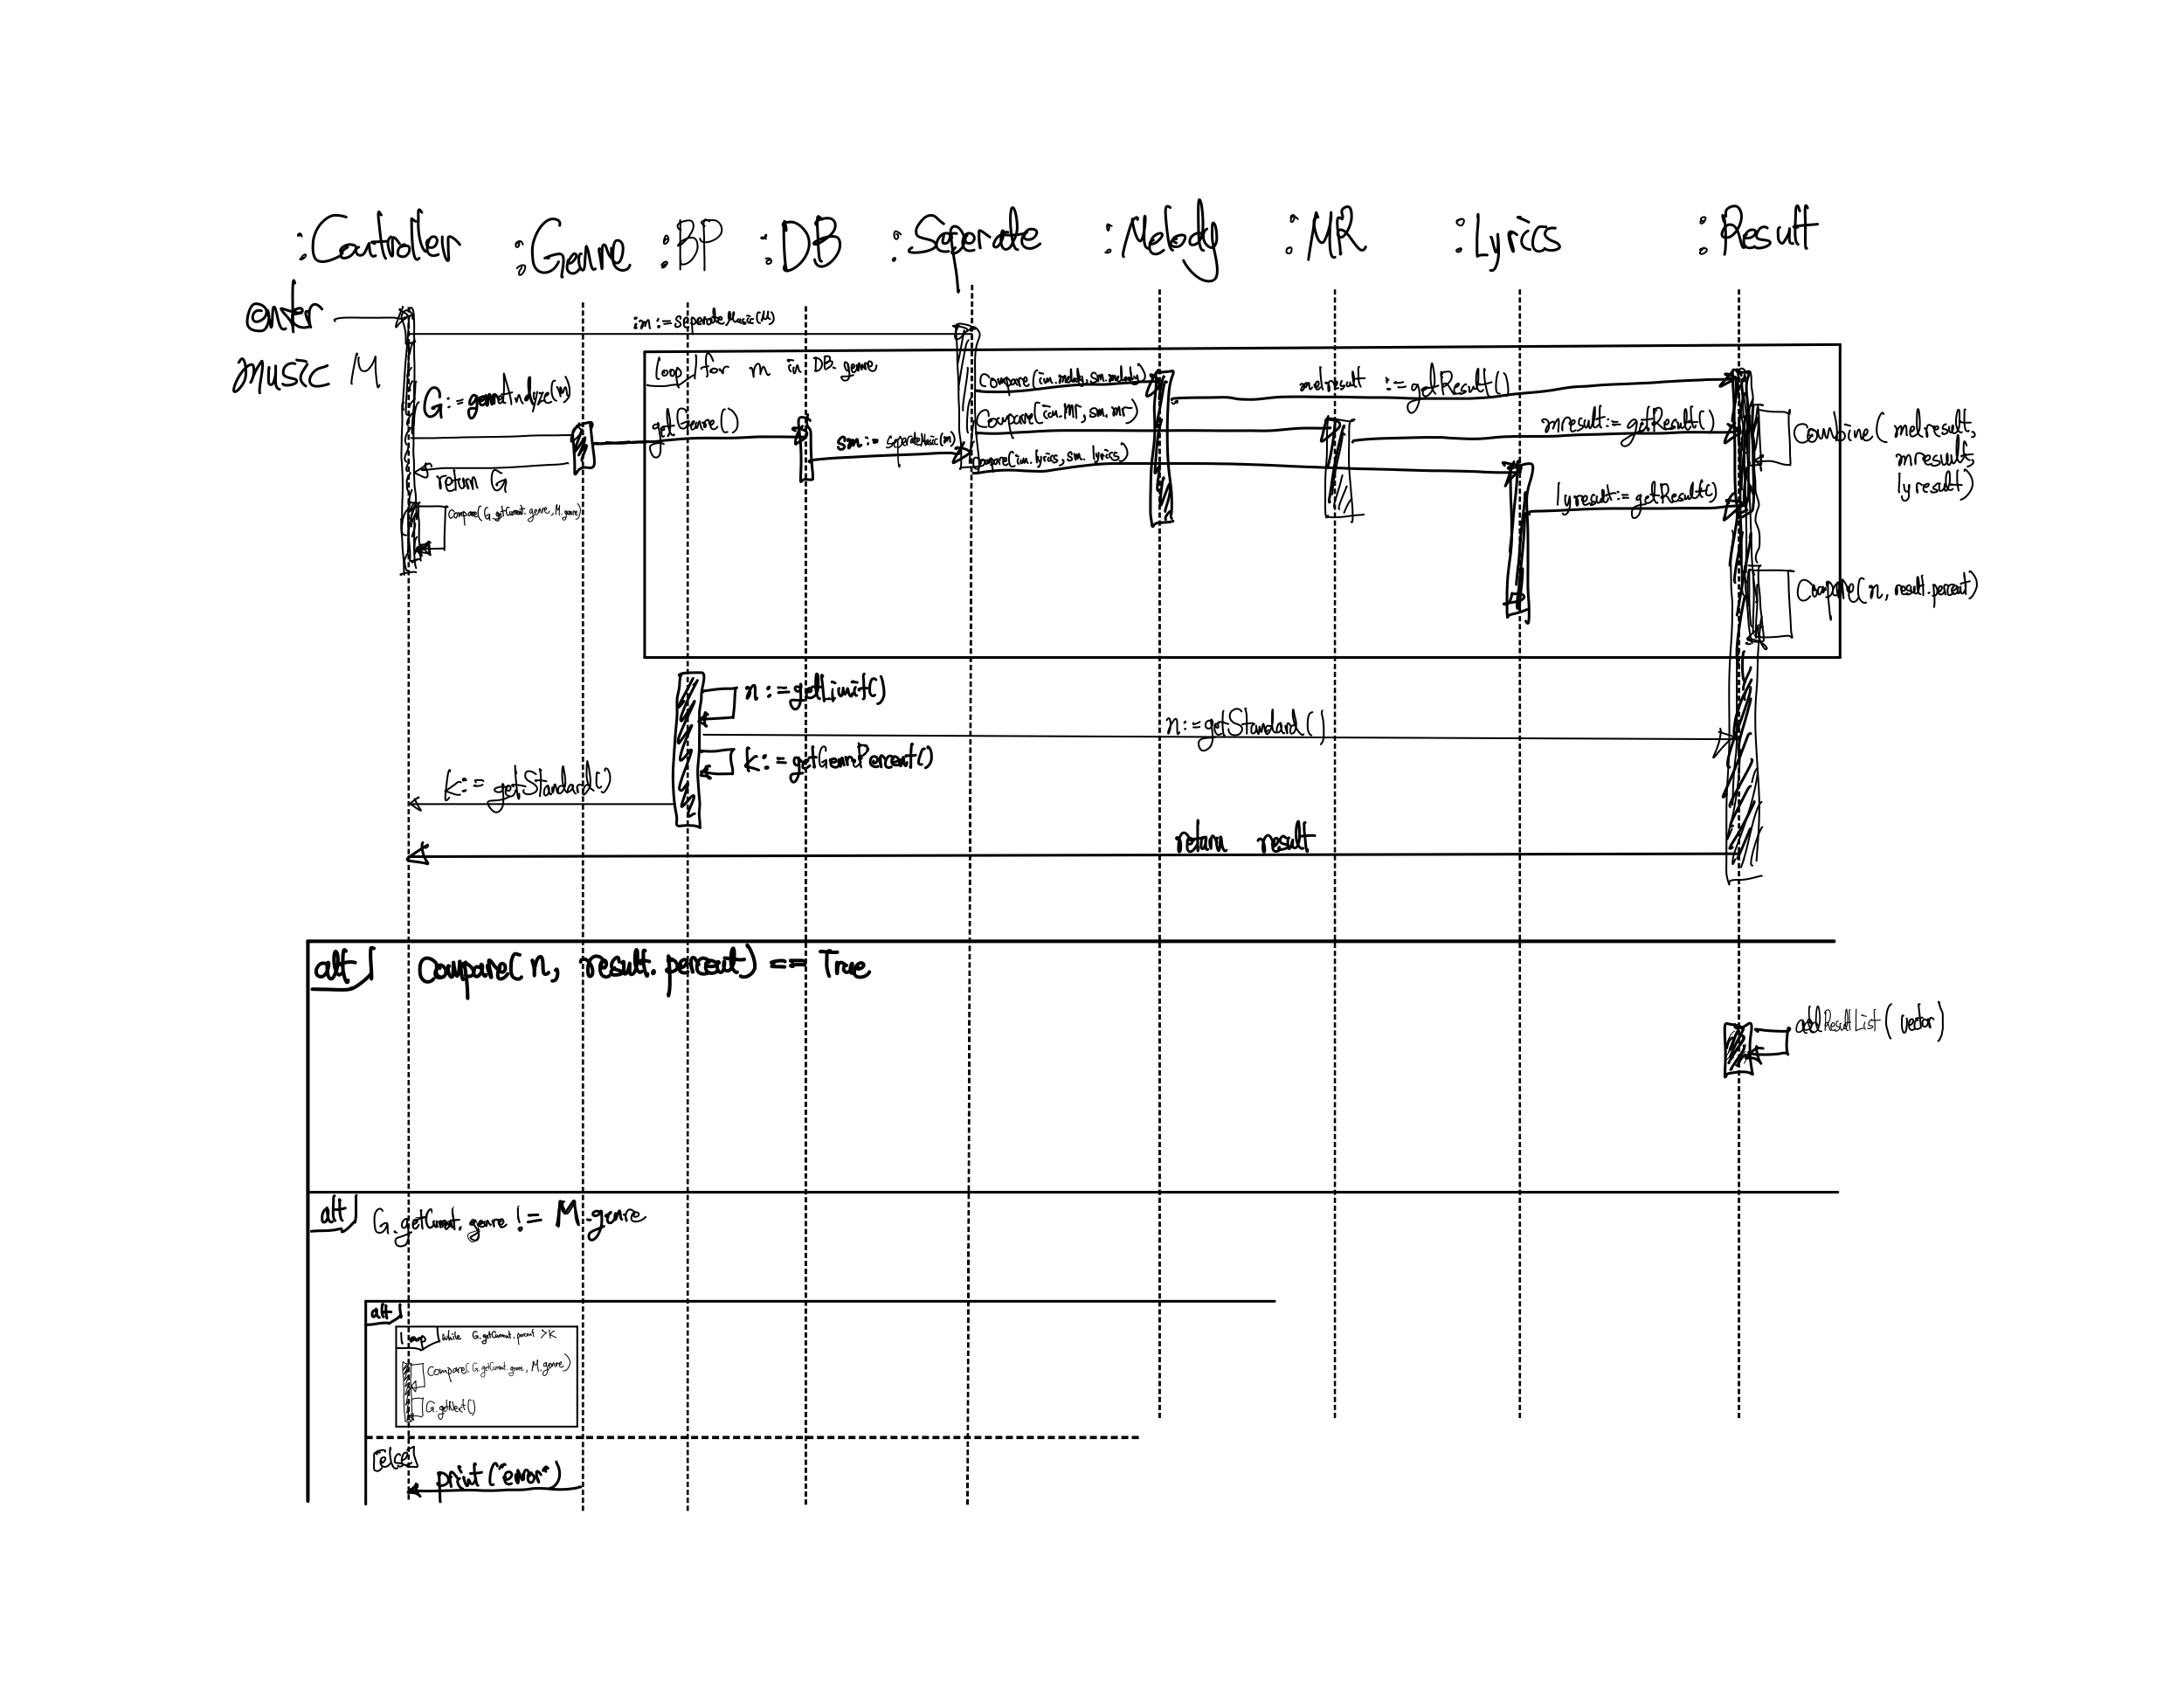 :Controller :Genre :BP :DB :Seperate :Melody :MR :Lyrics :Result
enter
music M
im:=seperateMusic(M)
loop for m in DB.genre
G:=genreAnalyze(m)
getGenre()
sm:=seperateMusic(m)
Compare(im.melody, sm.melody)
Compare(im.Mr, sm.mr)
Compare(im.lyrics, sm.lyrics)
melresult :=getResult()
mresult:=getResult()
lyresult:=getResult()
Combine(melresult,
mresult,
lyresult)
return G
Compare(G.getCurrent.genre, M.genre)
Compare(n, result.percent)
n:=getLimit()
n:=getStandard()
k:=getGenrePercent()
k:=getStandard()
return result
alt Compare(n, result.percent) == True
addResultList(vector)
alt G.getCurrent.genre != M.genre
alt
loop while G.getCurrent.percent >K
Compare(G.getCurrent.genre, M.genre)
G.getNext()
[else]
print("error")